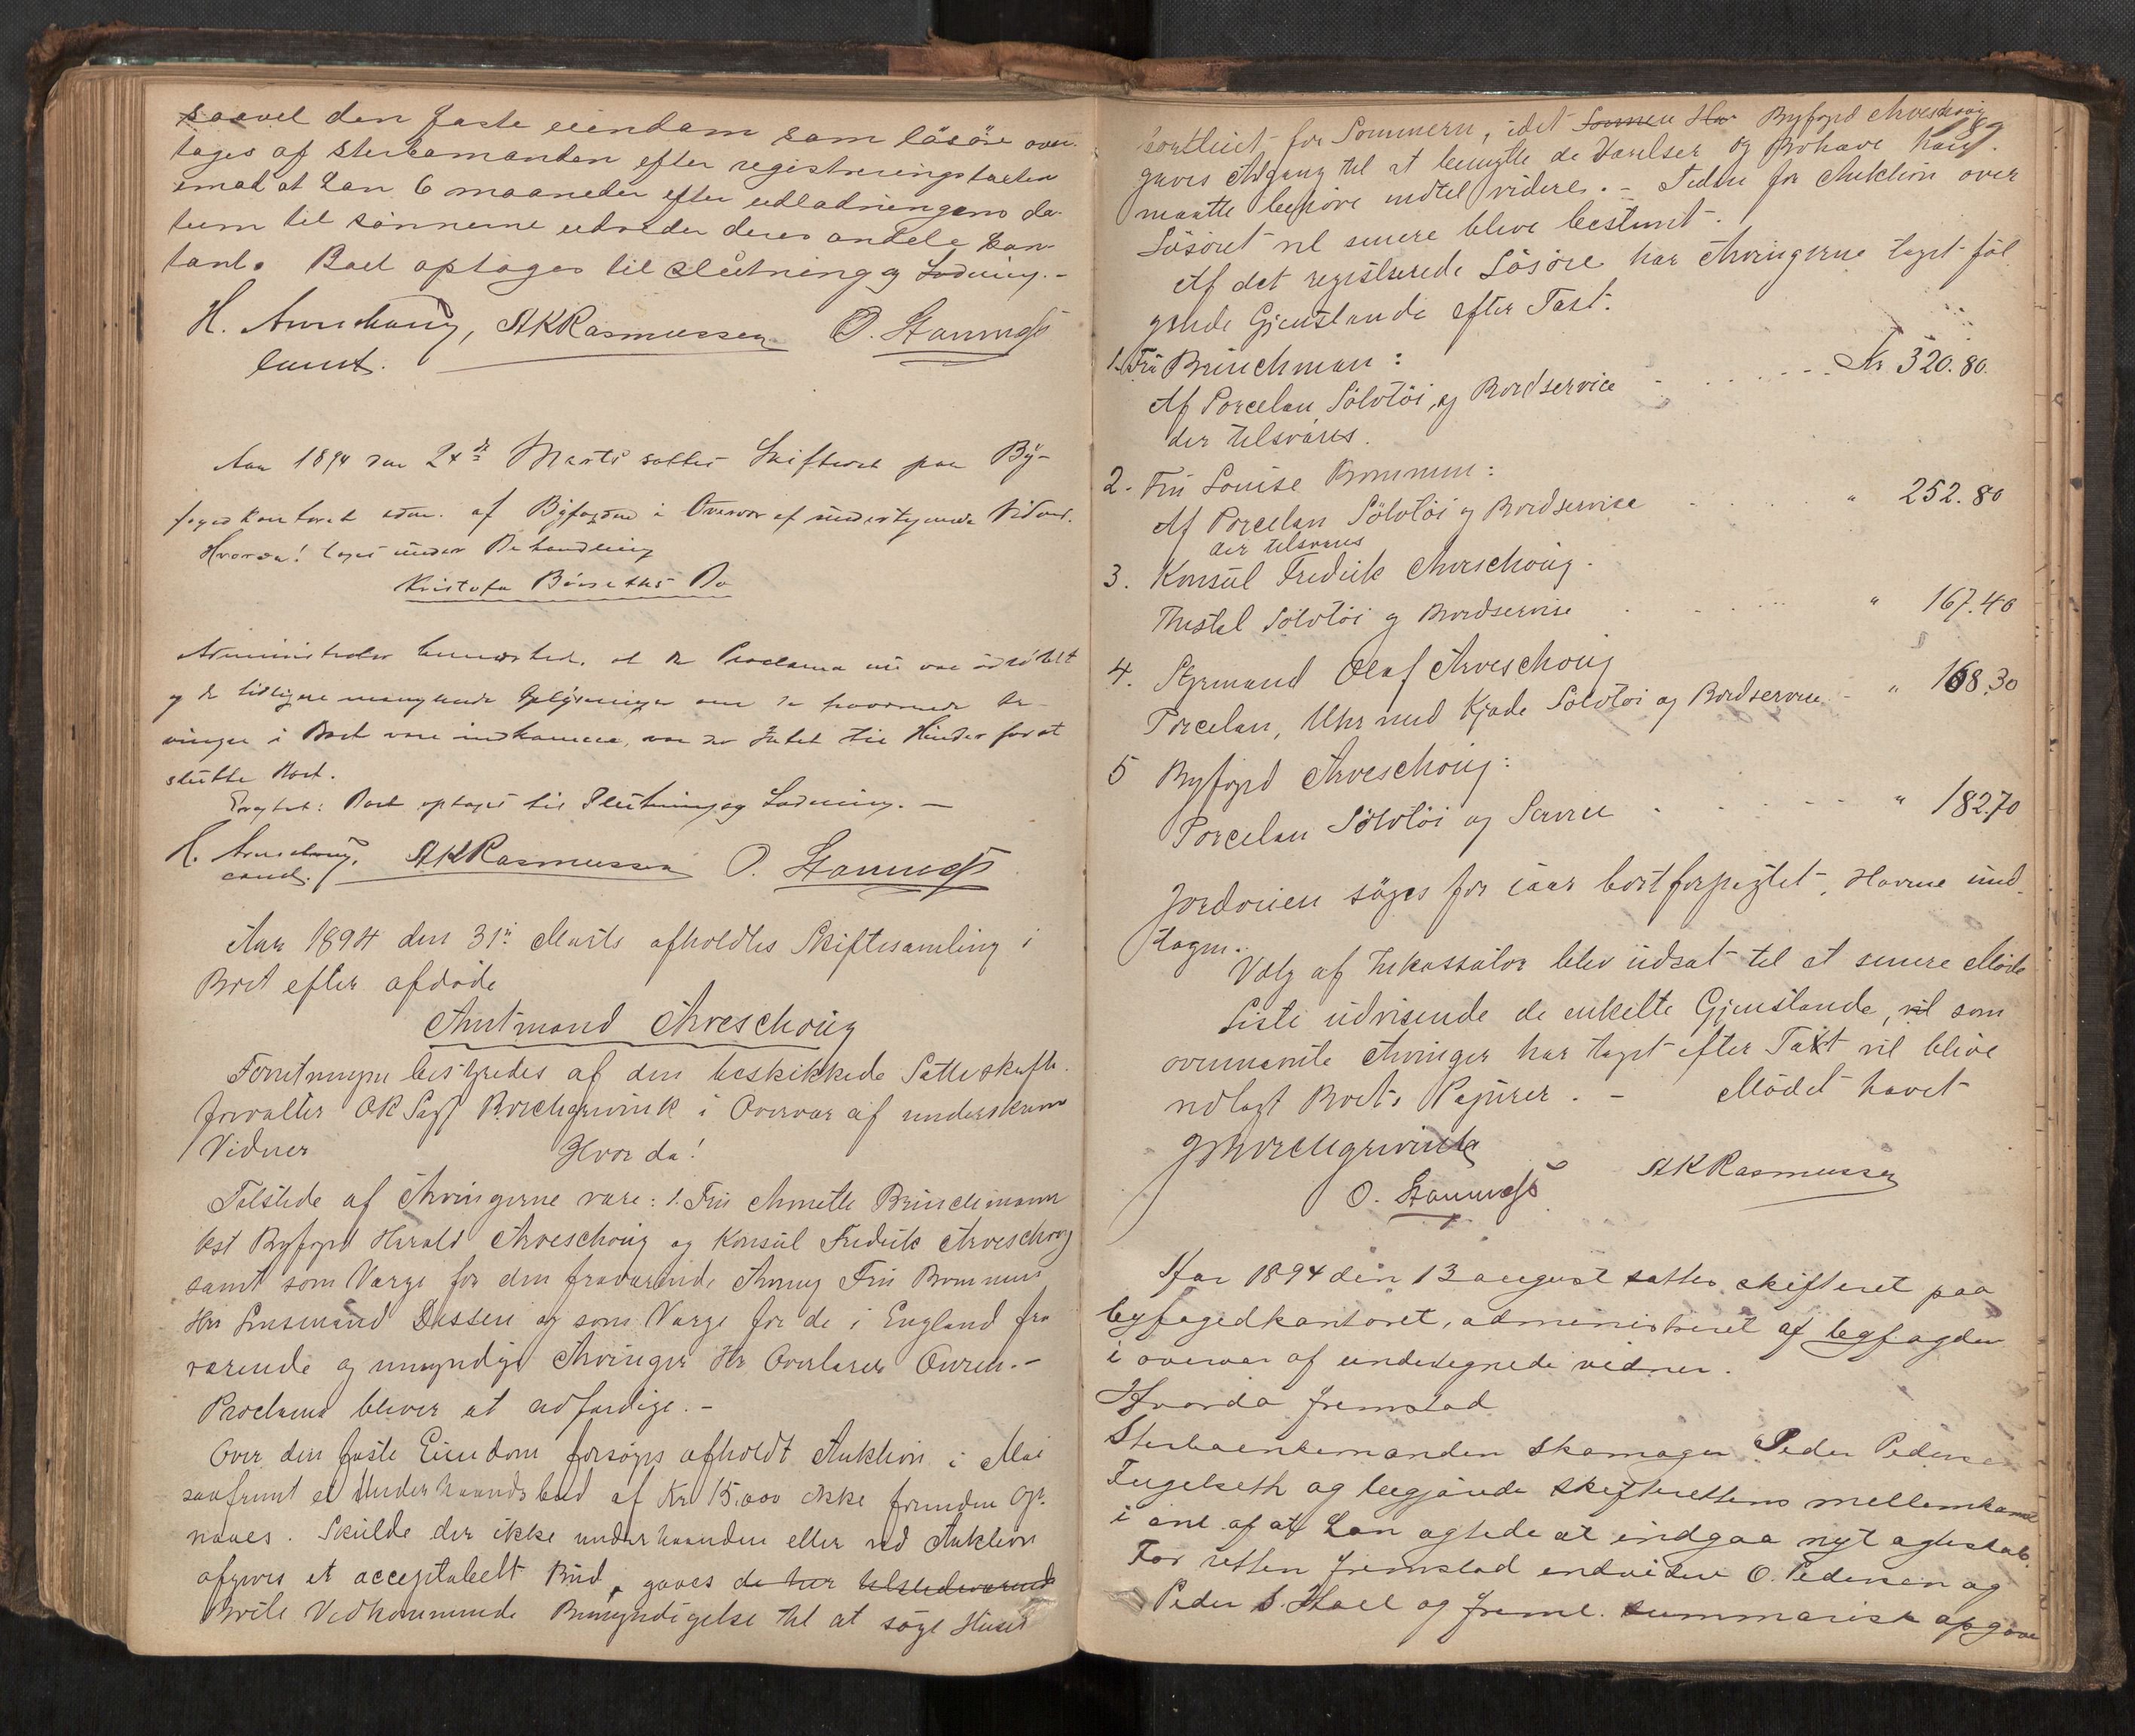 saavel den faste eiendom som løsøre over-
tages af sterbomanden efter registreringstaxten
imod at han 6 maaneder efter udlodningens da-
tum til sønnerne udreder deres andele kon-
tant. Boet optages til slutning og Lodning.-
H. Aveschoug, AKRasmussen O. Stanness
const.
Aar 1894 den 24de Marts sattes Skifteret paa By-
fogedkontoret adm. af Byfogden i Overvær af undertegnede Vidner.
Hvorda! toges under Behandling
Kristofa Bo
Administrator bemærked, at da Proclama nu var udløbet
og de tidligere manglende Oplysninger om de fraværende Ar-
vinger i Boet vare indkomne, var der Intet til Hinder for at
slutte Boet.
Boet optages til Slutning og Lodning. -
H. Aveschoug, AKRasmussen O. Stanness
const.
Aar 1894 den 31te Marts afholdtes Skiftesamling i
Boet efter afdøde
Amtmand Aveschoug
Forretningen bestyredes af den beskikkede Sætteskifte-
forvalter OR Sagf Borchgrevink i Overvær af underskrevne
Vidner Hvor da!
Tilstede af Arvingerne vare: 1. Fru Annette Brinchmann
kst Byfoged Harald Aveschoug og Konsul Fredrik Aveschoug
samt som Værge for den fraværende Arving Fru Brommun
Hr Lensmand Dessen og som Værge for de i England fra
værende og umyndige Arvinger Hr Overlærer Ouren.-
Proclama bliver at udfærdige.-
Over den faste Eiendom forsøges afholdt Auktion i Mai
saafremt et Underhaandsbud af Kr 15.000 ikke forinden op-
naaes. Skulde der ikke underhaanden eller ved Auktion
afgives et acceptabelt Bud, gaves de her tilstedeværende
Boets Vedkommende Bemyndigelse til at søge Huset
bortleiet for Sommeren, idet Byfoged Aveschoug
gaves Adgang til at benytte de Værelser og Bohave han
maatte behøve indtil videre. - Tiden for Auktion over
Løsøret vil senere blive bestemt.
Af det registrerede Løsøre har Arvingerne taget føl
gende Gjenstande efter Taxt.
1. Fru Brinchman:
Af Porcelan, Sølvtøi, og Bordservice - . . . . . - Kr 320.80.
der tilsvares.
2. Fru Louise Brommun:
Af Porcelan Sølvtøi og Bordservice . . . . " 252.80
der tilsvares
3. Konsul Fredrik Aveschoug.
Sølvtøi og Bordservise . . . . " 167.40
4. Styrmand Olaf Aveschoug
Porcelan, Uhr med Kjæde Sølvtøi og Bordservise - " 168.30
5 Byfoged Aveschoug:
Porcelan Sølvtøi og Service . . . . " 182.70
Jordveien søges for iaar bortforpagtet, Havne und-
tagen.
Valg af Inkassator blev udsat til et senere Møde
Liste udvisende de enkelte Gjenstande, som
ovennævnte Arvinger har taget efter Taxt vil blive
vedlagt Boets Papirer. - Mødet hævet
Borchgrevink
O. Stanness AKRasmussen
Aar 1894 den 13 august sattes skifteret paa
byfogedkontoret, administreret af byfogden
i overvær af undertegnede vidner.
Hvorda fremstod
Sterboenkemanden skomager Peder Pedersen
Fugelseth og begjærede skifterettens mellemkomst
i anl. af at han agtede at indgaa nyt ægteskab.
For retten fremstod endvidere O. Pedersen og
Peder S. Hoel og freml. summarisk opgave